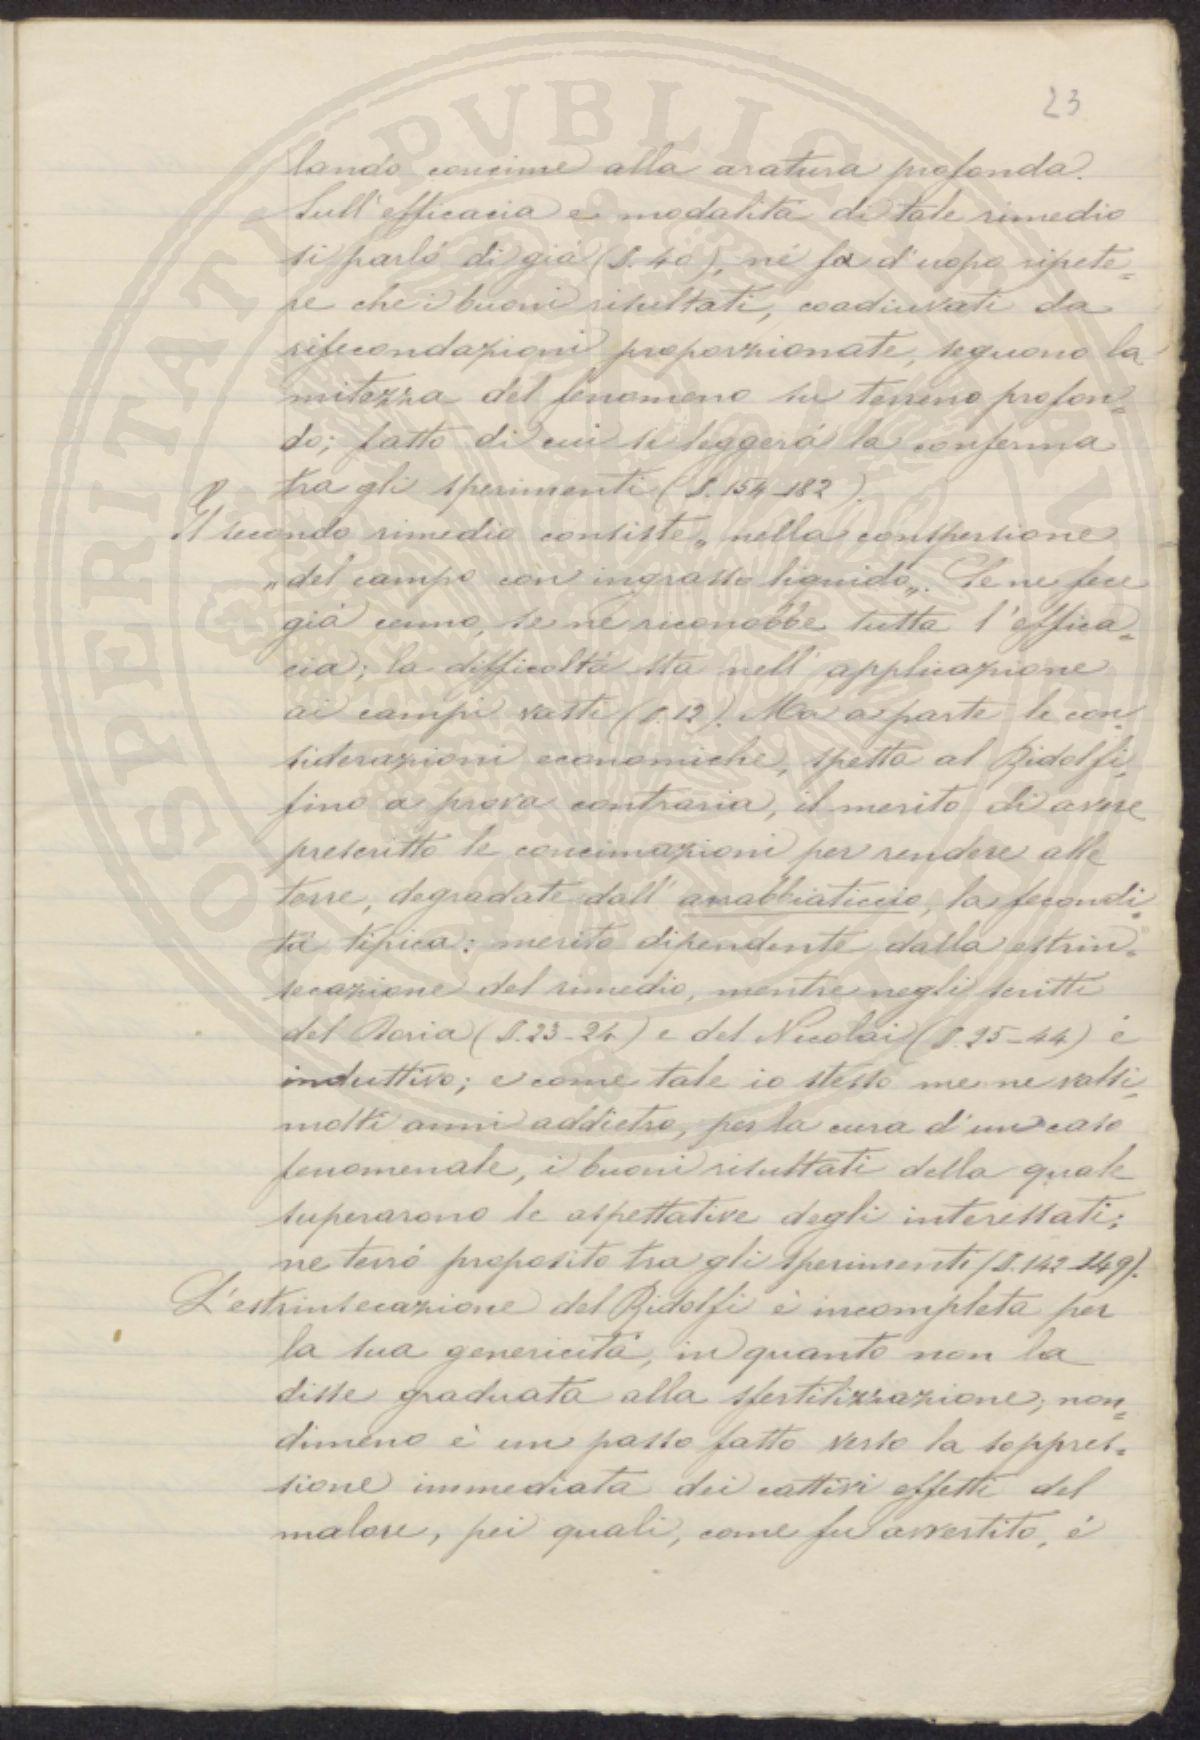 23
lando concime alla aratura profonda.
Sull'efficacia e modalità di tale rimedio
si parlò di già (§. 40), né fa d'uopo ripete=
re che i buoni risultati, coadiuvati da
rifecondazioni proporzionate, seguono la
mitezza del fenomeno su terreno profon=
do; fatto di cui si leggerà la conferma
tra gli sperimenti (§. 154-182).
Il secondo rimedio consiste „ nella conspersione
„ del campo con ingrasso liquido „. Se ne fece
già cenno, se ne riconobbe tutta l'effica=
cia; la difficoltà sta nell'applicazione
ai campi vasti (§. 12). Ma a parte le con=
siderazioni economiche, spetta al Ridolfi,
fino a prova contraria, il merito di avere
prescritto le concimazioni per rendere alle
terre, degradate dall'arrabbiaticcio, la fecondi=
tà tipica: merito dipendente dalla estrin=
secazione del rimedio, mentre negli scritti
del Doria (§. 23-24) e del Nicolai (§. 25-44) è
induttivo; e come tale io stesso me ne valsi,
molti anni addietro, per la cura d'un caso
fenomenale, i buoni risultati della quale
superarono le aspettative degli interessati;
ne terrò proposito tra gli sperimenti (§. 142-149).
L'estrinsecazione del Ridolfi è incompleta per
la sua genericità, in quanto non la
disse graduata alla sfertilizzazione; non=
dimeno è un passo fatto verso la soppres=
sione immediata dei cattivi effetti del
malore, pei quali, come fu avvertito, è